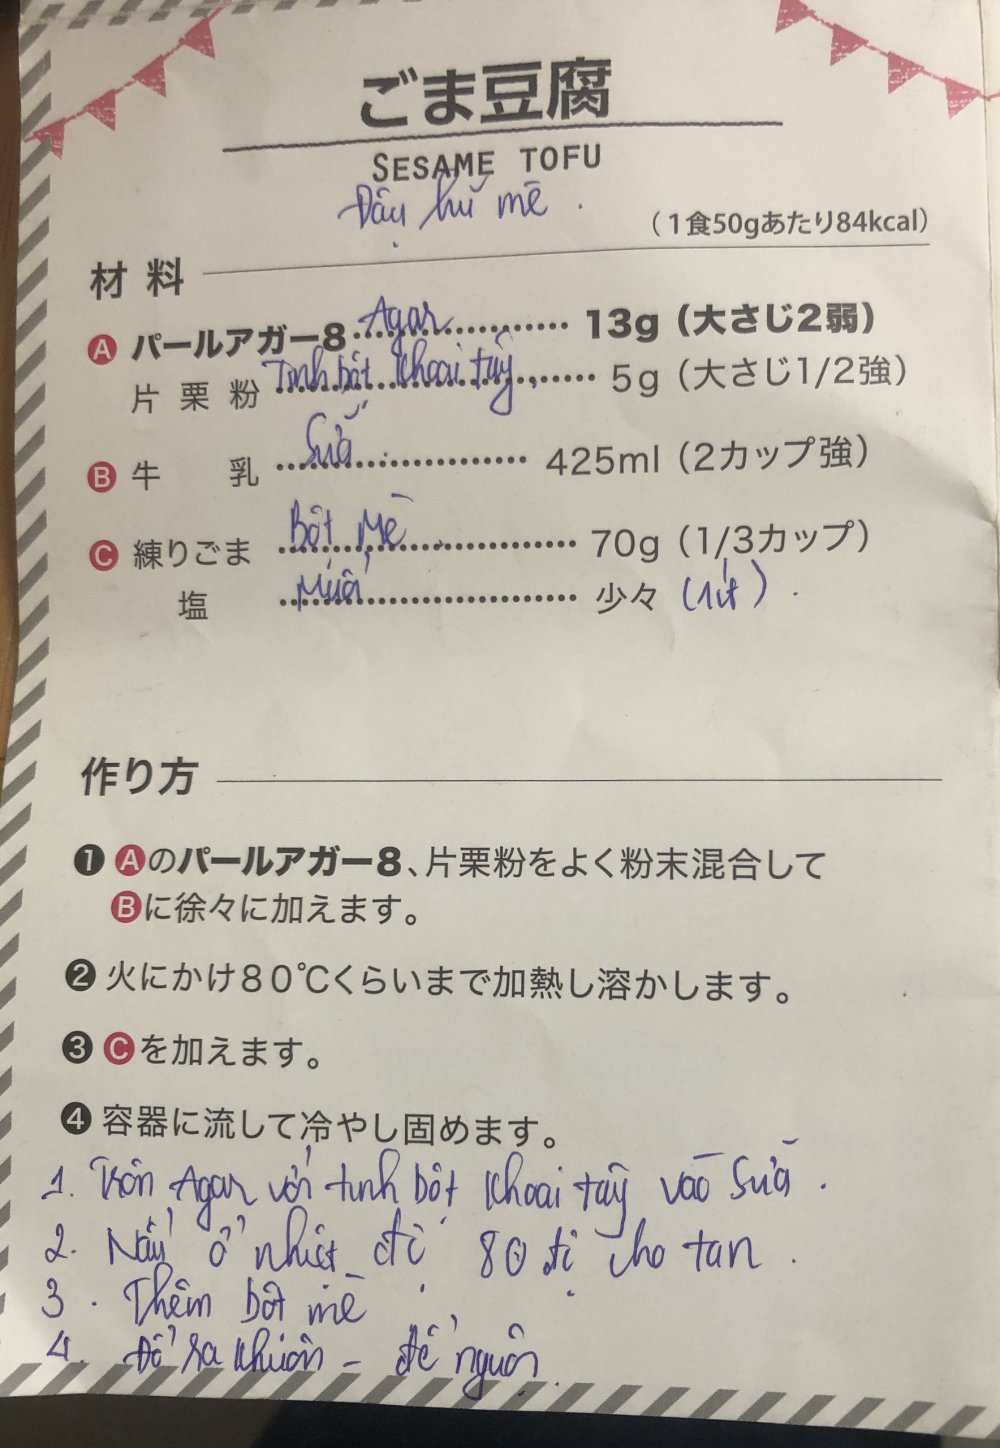 ごま豆腐
SESAME TOFU
Đậu hũ mè.
（1食50gあたり84kcal）
材料
A パールアガー8 Agar 13g（大さじ2弱）
片栗粉 Tinh bột khoai tây 5g（大さじ1/2強）
B 牛乳 Sữa 425ml（2カップ強）
C 練りごま Bột Mè 70g（1/3カップ）
塩 Muối 少々 (1 ít).
作り方
❶ Aのパールアガー8、片栗粉をよく粉末混合して
Bに徐々に加えます。
❷ 火にかけ80℃くらいまで加熱し溶かします。
❸ Cを加えます。
❹ 容器に流して冷やし固めます。
1. Trộn Agar với tinh bột khoai tây vào Sữa.
2. Nấu ở nhiệt độ 80 độ cho tan.
3. Thêm bột mè
4. Đổ ra khuôn - để nguội.